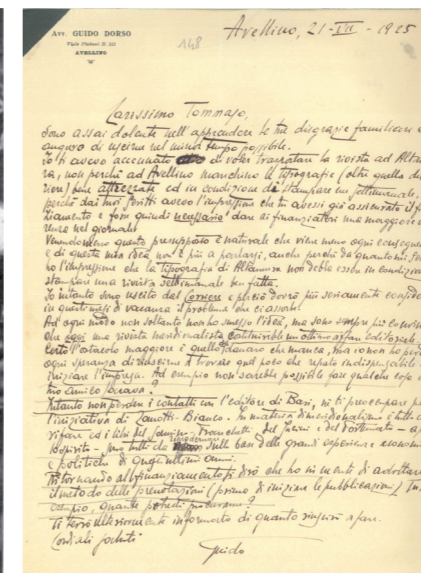 AVV. GUIDO DORSO
AVELLINO
148
Avellino, 21-VII-1925
Carissimo Tommaso,
Sono assai dolente nell'apprendere le tue disgrazie familiari e
auguro di uscirne nel minor tempo possibile.
Io ti avevo accennato di voler trasportare la rivista ad Alta
ra, non perché ad Avellino manchino le tipografie (oltre quella del
riere) bene attrezzate ed in condizioni di stampare un settimanale,
perché dai tuoi scritti avevo l'impressione che tu avessi già assicurato il f
ziamento e fosse quindi necessario dare ai finanziatori una maggiore
renza nel giornale.
Venendo meno questo presupposto è naturale che viene meno ogni consegue
e di questa mia idea non è più a parlarsi, anche perché da quanto mi
ho l'impressione che la tipografia di Altamura non debba essere in condizioni
stampare una rivista settimanale ben fatta.
Io intanto sono uscito dal Corriere e perciò dovrò più seriamente
in questi mesi di vacanza il problema che ci assorbe.
Ad ogni modo non soltanto non ho smesso l'idea, ma sono sempre più convinto
che oggi una rivista meridionalista costituirebbe un ottimo affare editoriale.
Certo l'ostacolo maggiore è quello del danaro che manca, ma io non ho
ogni speranza di riuscire a trovare quel poco che reputo indispensabile
iniziare l'impresa. Ad esempio non sarebbe possibile fare qualche cosa
tuo amico
Intanto non perdere i contatti con l'editore di Bari, né ti preoccupare
l'iniziativa di Zanotti-Bianco. In materia di meridionalismo è tutto
rifare ed i libri del Sonnino-Franchetti, del Jacini e del Fortunato
rispetto - sono tutti da sulla base delle grandi esperienze econom
e politiche di questi ultimi anni.
Ritornando al finanziamento ti dirò che ho in mente di adottare
il metodo delle prenotazioni (prima di iniziare le pubblicazioni). Tu,
esempio, quante potresti procurarne?
Ti terrò ulteriormente informato di quanto riuscirò a fare.
Cordiali saluti
Guido